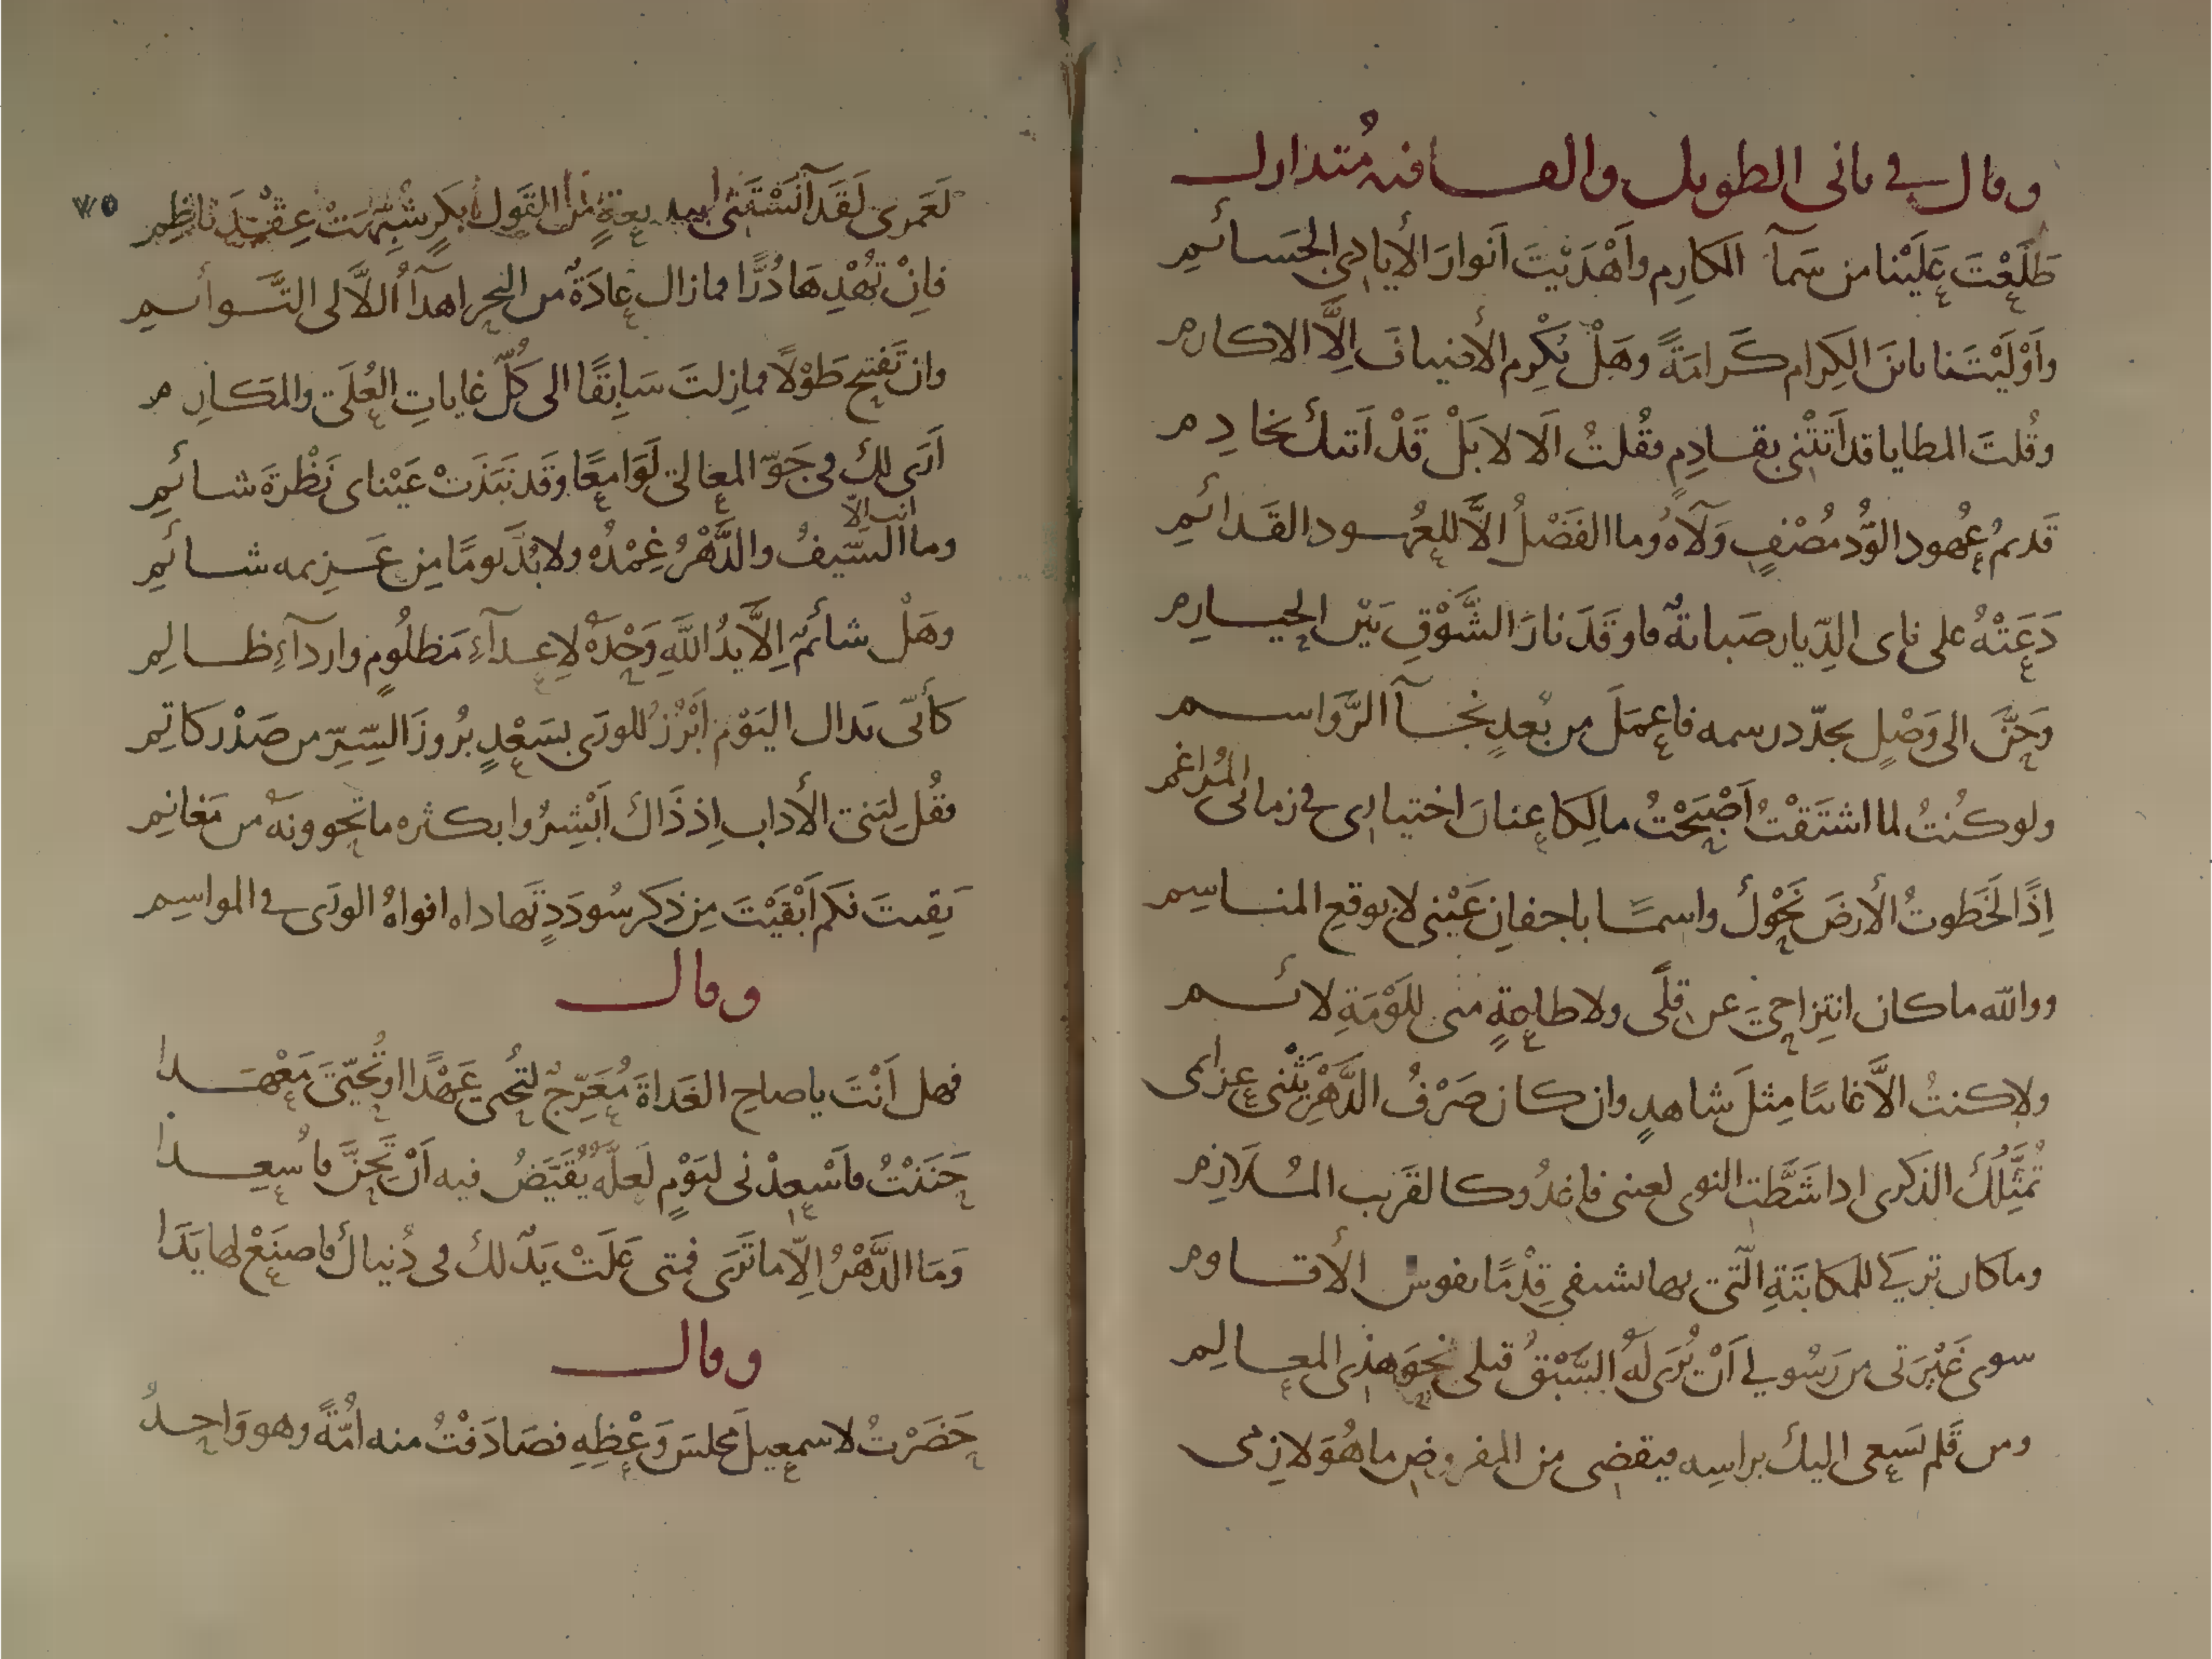 وقال في ثاني الطويل والقافية مُتدارك
طَلَعْتَ عَلَيْنا من سَمآ المكارِم وأَهْدَيْتَ اَنوارَ الأيادي الحَسَائمِ
وأَوْلَيْتَنا يابنَ الكِرام كَرامَةً وهَلْ يُكْرِم الأضيافَ اِلَّا الاكارم
وقُلتَ المطايا قد اَتَتْنِي بقادِمٍ فقُلتُ اَلا لا بَلْ قَدْ اَتتك بخادِم
قَديمُ عُهود الوُّد مُصْفٍ وَلآءهُ وما الفَضْلُ الاَّ للعُهود القَدائمِ
دَعَتْهُ على ناى الدِّيار صَبابةٌ فاوقَدَ نارَ الشَّوْقِ بَيْن الحيازم
وَحَنَّ الى وَصْلٍ يجدّد رسمه فاعمَلَ من بُعدٍ نجآ الرَّواسم
ولو كُنتُ لما اشتَقْتُ اَصْبَحْتُ مالِكا عِنانَ اختيارى في زمانى المُراغم
اِذًا لَخَطوتُ الأرضَ نَحْوكَ واسمًا باجفانِ عَيْنِي لا بوقعِ المناسِم
ووالله ما كان انتِزاحِيَ عن قِلًى ولا طاعةٍ منى لِلَوْمَةِ لائم
ولا كنتُ الاَّ غائبًا مِثلَ شاهدٍ وان كان صَرْفُ الدَّهْرِ يَثْنى عزائمى
تُمَثِّلُكَ الذكرى اذا شَطَّت النوى لعينى فاغدُو كالقَريب المُلازم
وما كان تركي للمكاتَبَةِ الّتي بها تشفي قِدْمًا نفوس الأقاوم
سوى غَيْرَتى من رَسُولي اَنْ يُرَى لَهُ السَّبْقُ قبلى نحوَ هذى المعالِم
ومن قَلم يَسعى اليك براسِه فيقضى من المفروض ما هُوَ لازمى
٧٥
لَعَمرى لَقَد آنَسْتَنى ببديعةٍ من القَول بِكرٍ شُبِّهَتْ عِقْدَ ناظِم
فاِنْ تُهْدِهَا دُرًّا فما زال عادَةٌ من البحر اهدآُ اللآلى التَّوائم
وان تَفتتح طَوْلاً فما زلتَ سَابِقًا الى كُلّ غاياتِ العُلَى والمَكارِم
اَرَى لك فى جَوّ المعالى لَوَامِعًا وقَد نَبَذَتْ عَيْناى نَظْرَةَ شائمِ
وما انت الاّ السَّيفُ والدَّهْرُ غِمْدُهُ ولا بُدَّ يومًا مِن عَزيمه شائمِ
وهَلْ شائمٌ اِلاَّ يدُ اللّهِ وَحْدَهُ لاِعدآءِ مَظلُومٍ وارداءِ ظالِم
كأنّى بذاك اليَوْم اَبْرَزَ للورَى بسَعْدٍ بُروزَ السِّرِّ من صَدْر كاتِم
فقُل لِبَنى الأداب اِذ ذَاكَ اَبْشِرُوا بكثره ما تحوونَهُ من مَغانِم
بَقِيتَ فكم اَبْقَيْتَ مِن ذكر سُودَدٍ تَهاداه افواهُ الورَى في المواسِم
وقال
فهل اَنْتَ يا صاحِ الغَداةَ مُعَرِّجٌ لتُحْيِي عَهْدًا او تُحَيِّيَ مَعْهَدا
حَنَنْتُ فاَسْعِدْنى ليَوْمٍ لَعَلَّهُ يُقَيَّضُ فيه اَنْ تَحِنَّ فاُسعِدا
وَمَا الدَّهْرُ اِلاّ ما تَرَى فمتى عَلَتْ يَدٌ لك فى دُنياك فاصنَعْ لها يَدَا
وقال
حَضَرْتُ لاسمعيلَ مَجلسَ وَعْظِهِ فصَادَفْتُ منه اُمّةً وهو وَاحِدُ